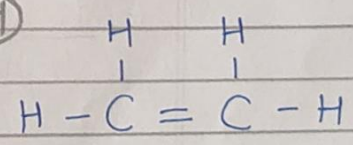 1)
H H
| |
H - C = C - H